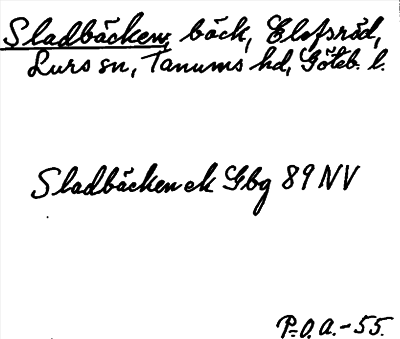 Sladbäcken, bäck, Elofsröd,
Lurs sn, Tanums hd, Göteb. l.
Sladbäcken ek Gbg 89 NV
P.O.A.-55.